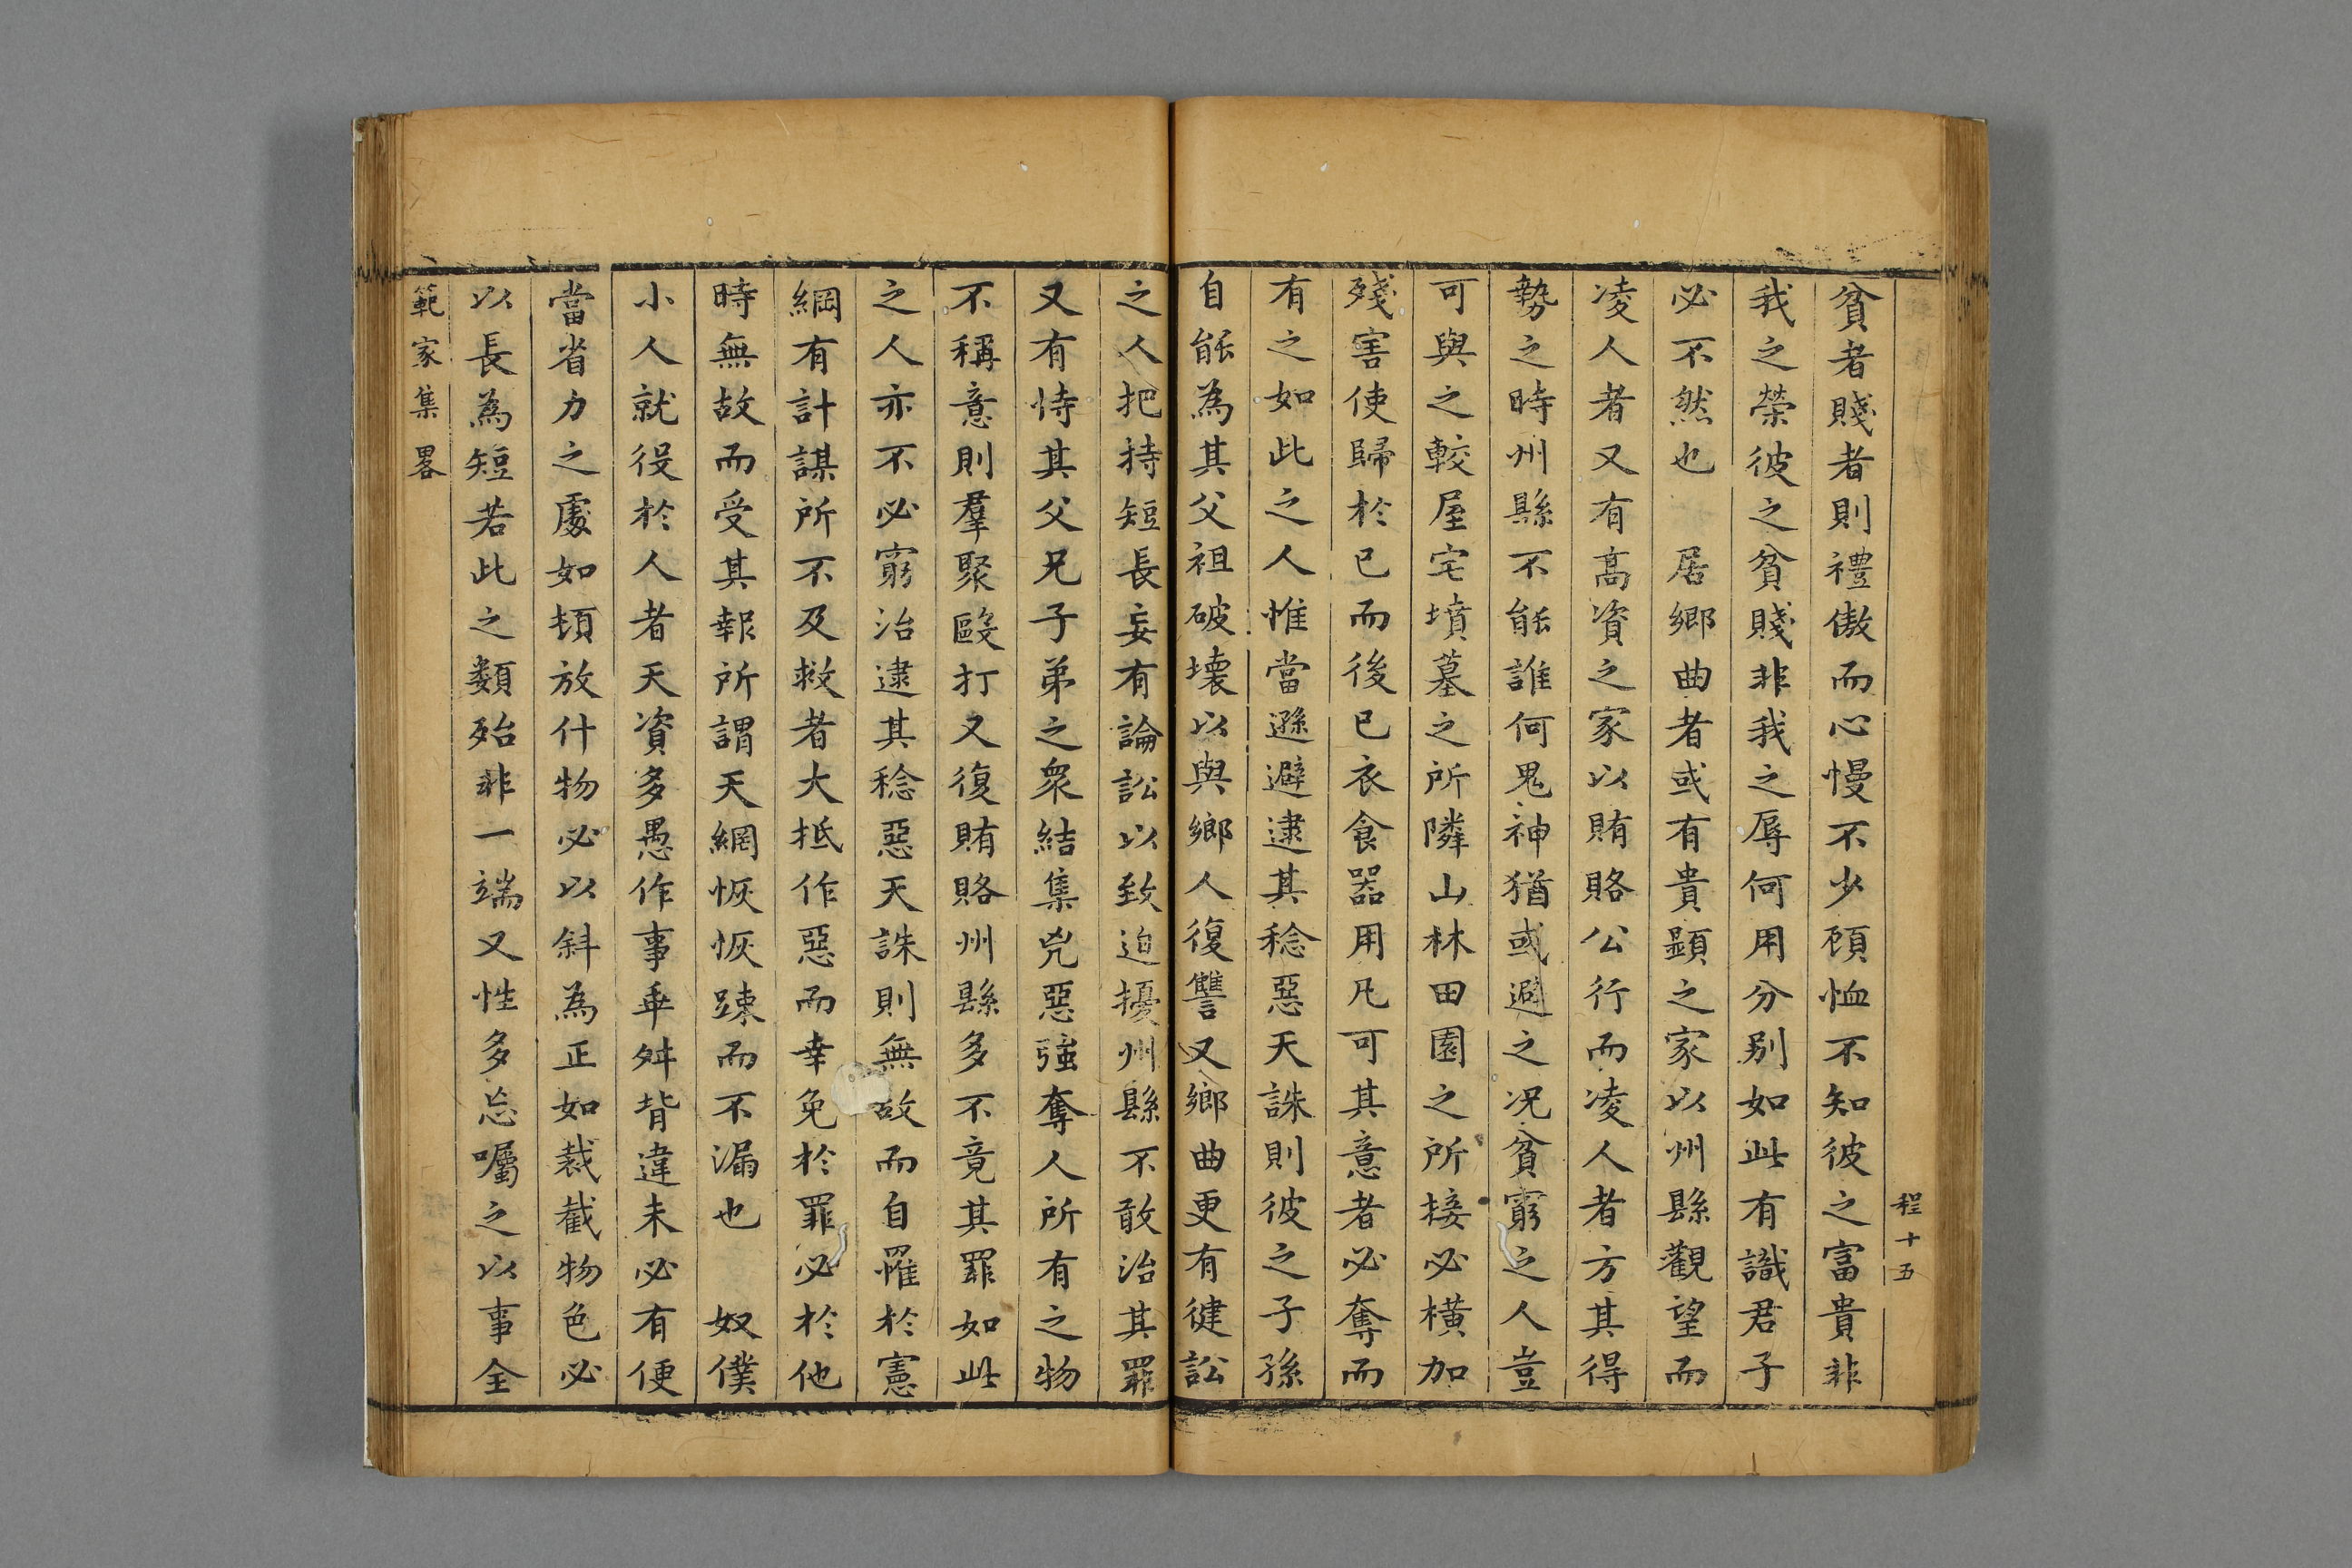 程十五
貧者賤者則禮傲而心慢不少顧恤不知彼之富貴非
我之榮彼之貧賤非我之辱何用分別如此有識君子
必不然也 居鄉曲者或有貴顯之家以州縣觀望而
凌人者又有高資之家以賄賂公行而凌人者方其得
勢之時州縣不能誰何鬼神猶或避之况貧窮之人豈
可與之較屋宅墳墓之所隣山林田園之所接必橫加
殘害使歸於已而後已衣食器用凡可其意者必奪而
有之如此之人惟當遜避逮其稔惡天誅則彼之子孫
自能為其父祖破壞以與鄉人復讐又鄉曲更有健訟
之人把持短長妄有論訟以致迫擾州縣不敢治其罪
又有恃其父兄子弟之衆結集兇惡強奪人所有之物
不稱意則羣聚毆打又復賄賂州縣多不竟其罪如此
之人亦不必窮治逮其稔惡天誅則無故而自罹於憲
綱有計謀所不及救者大抵作惡而幸免於罪必於他
時無故而受其報所謂天網恢恢踈而不漏也 奴僕
小人就役於人者天資多愚作事乖舛背違未必有便
當省力之處如頓放什物必以斜為正如裁截物色必
以長為短若此之類殆非一端又性多忘囑之以事全
範家集畧